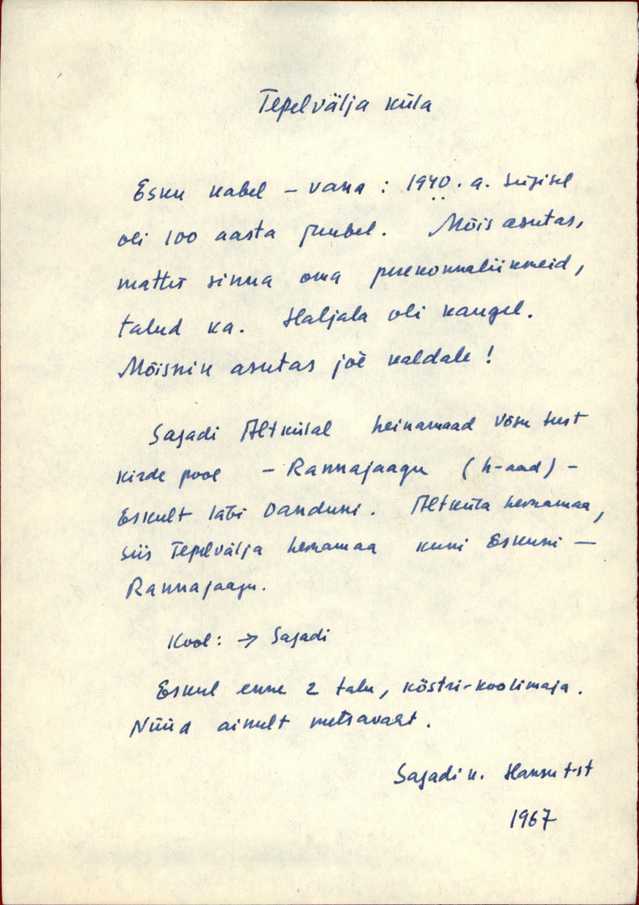 Tepelvälja küla
Esku kabel – vana : 1940. a. sügisel
oli 100 aasta juubel. Mõis asutas,
mattis sinna oma perekonnaliikmeid,
talud ka. Haljala oli kaugel.
Mõisnik asutas jõe kaldale !
Sagadi Altkülal heinamaad Võsu
kirde pool – Rannajaagu (h-aad) –
Eskult läbi Vanduni. Altküla heinamaa,
siis Tepelvälja heinamaa kuni Eskuni –
Rannajaagu.
Kool : → Sagadi
Eskul enne 2 talu, köstri-koolimaja.
Nüüd ainult metsavaht.
Sagadi k. Hansu t-st
1967